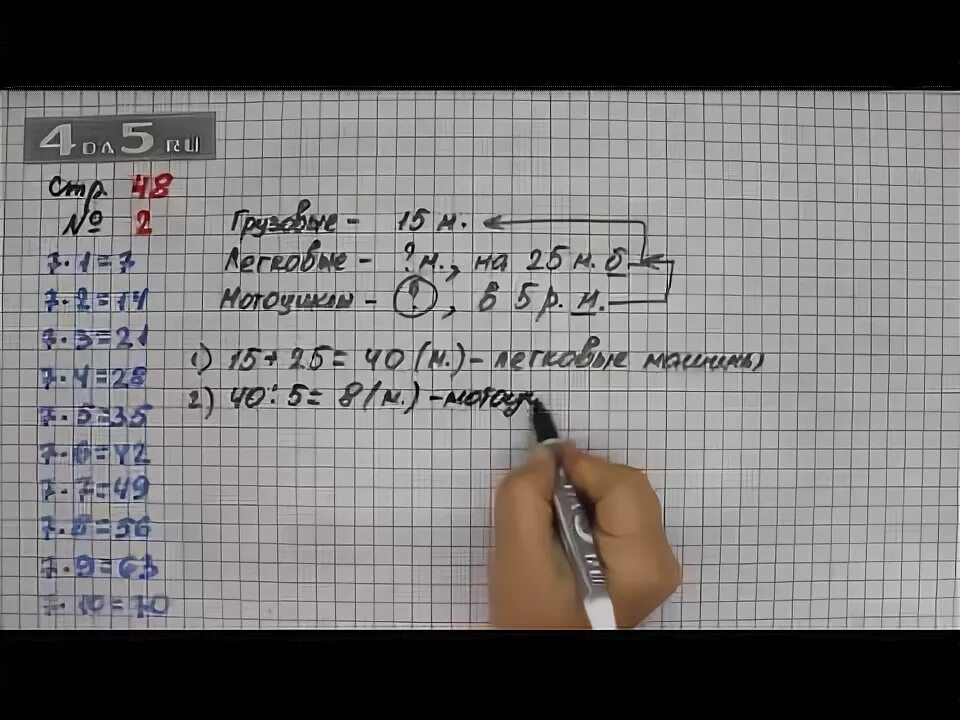 4 DЛ 5 RU
Стр. 48
№ 2
7·1=7
7·2=14
7·3=21
7·4=28
7·5=35
7·6=42
7·7=49
7·8=56
7·9=63
7·10=70
Грузовые - 15 м.
Легковые - ? м., на 25 м. б
Мотоциклы - ?, в 5 р. м.
1) 15 + 25 = 40 (м.) - легковые машины
2) 40 : 5 = 8 (м.) - мотоц